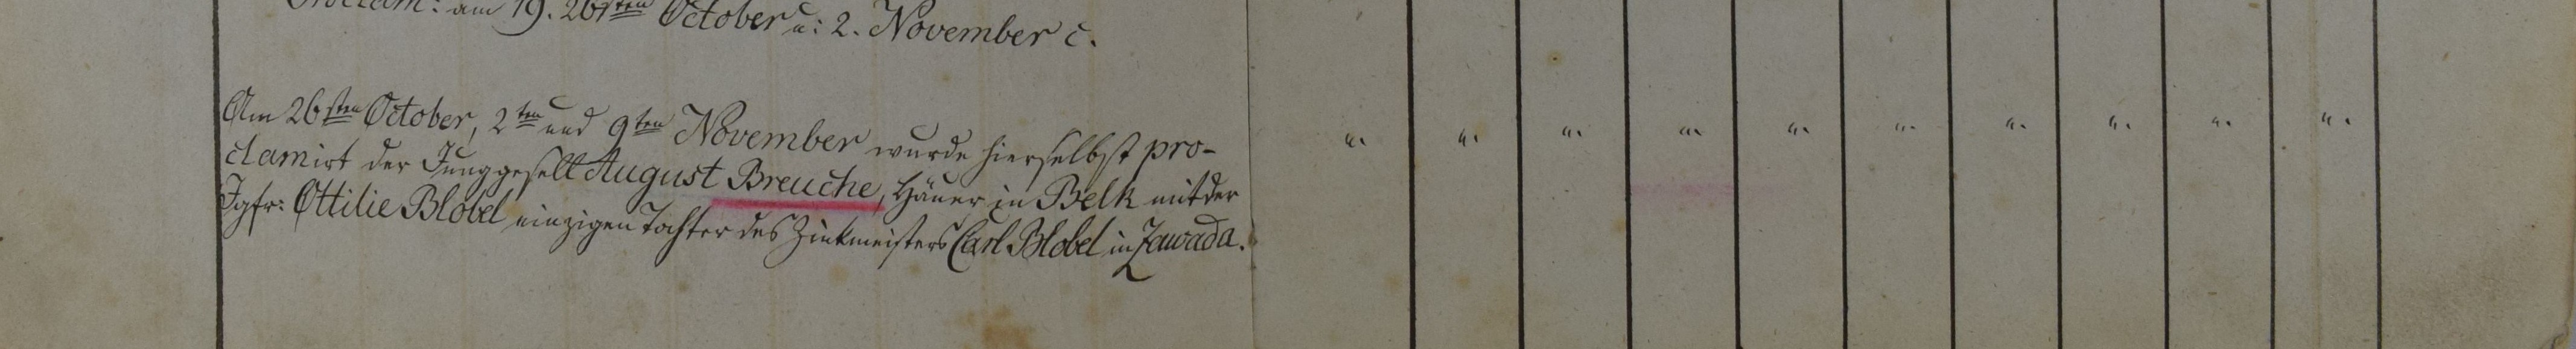 Proclam: am 19. 26sten October u: 2. November c.
Am 26sten October, 2ten und 9ten November wurde hierselbst pro-
clamirt der Junggesell August Breuche, Häuer in Belk mit der
Jgfr: Ottilie Blobel einzigen Tochter des Zinkmeisters Carl Blobel in Zawada.
". ". ". ". ". ". ". ". ". ".